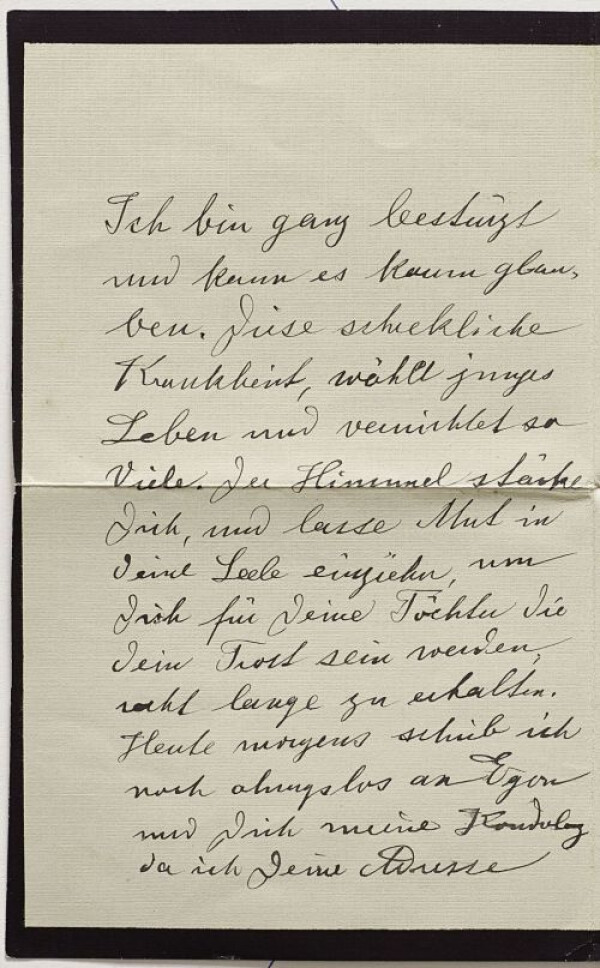 Ich bin ganz bestürzt
und kann es kaum glau-
ben. Diese schrekliche
Krankheit, wählt junges
Leben und vernichtet so
Viele. Der Himmel stärke
Dich, und lasse Mut in
Deine Seele einziehn, um
Dich für Deine Töchter die
Dein Trost sein werden,
recht lange zu erhalten.
Heute morgens schrieb ich
noch ahnungslos an Egon
und Dich meine Kondolenz
da ich Deine Adresse